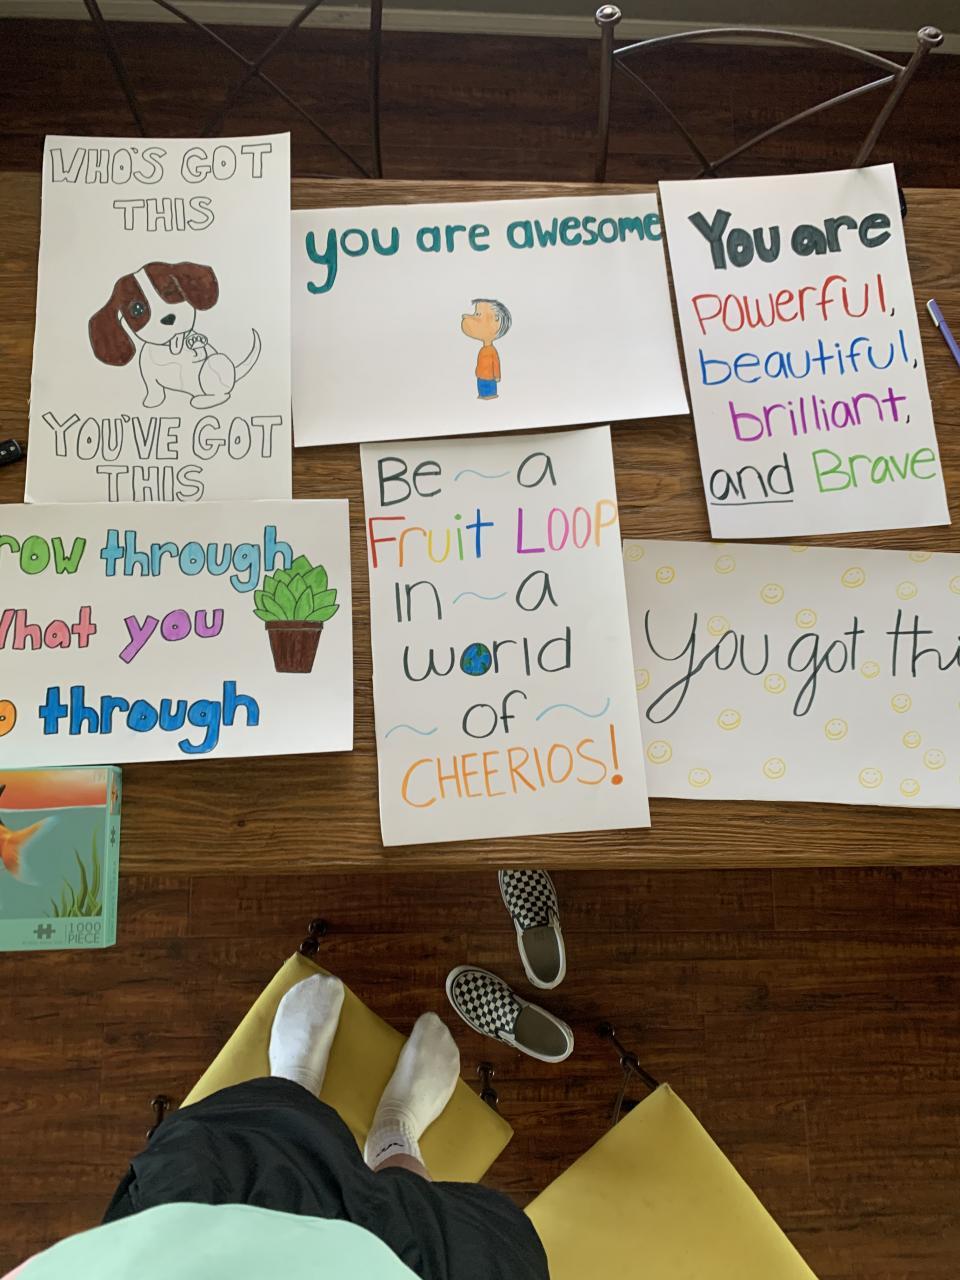 WHO'S GOT
THIS
YOU'VE GOT
THIS
you are awesome
You are
Powerful,
beautiful,
brilliant,
and Brave
row through
what you
o through
Be ~ a
Fruit LOOP
In ~ a
world
~ of ~
CHEERIOS!
You got thi
1000
PIECE